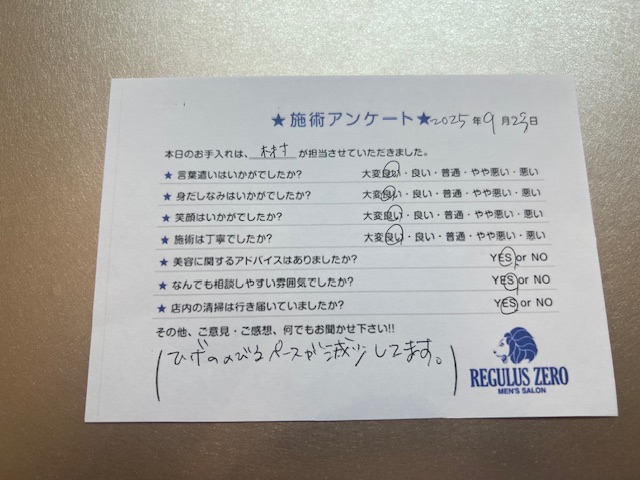 ★施術アンケート★ 2025年9月23日
本日のお手入れは、木村が担当させていただきました。
★ 言葉遣いはいかがでしたか? 大変良い・良い・普通・やや悪い・悪い
★ 身だしなみはいかがでしたか? 大変良い・良い・普通・やや悪い・悪い
★ 笑顔はいかがでしたか? 大変良い・良い・普通・やや悪い・悪い
★ 施術は丁寧でしたか? 大変良い・良い・普通・やや悪い・悪い
★ 美容に関するアドバイスはありましたか? YES or NO
★ なんでも相談しやすい雰囲気でしたか? YES or NO
★ 店内の清掃は行き届いていましたか? YES or NO
その他、ご意見・ご感想、何でもお聞かせ下さい!!
(ひげののびるペースが減少してます。)
REGULUS ZERO
MEN'S SALON